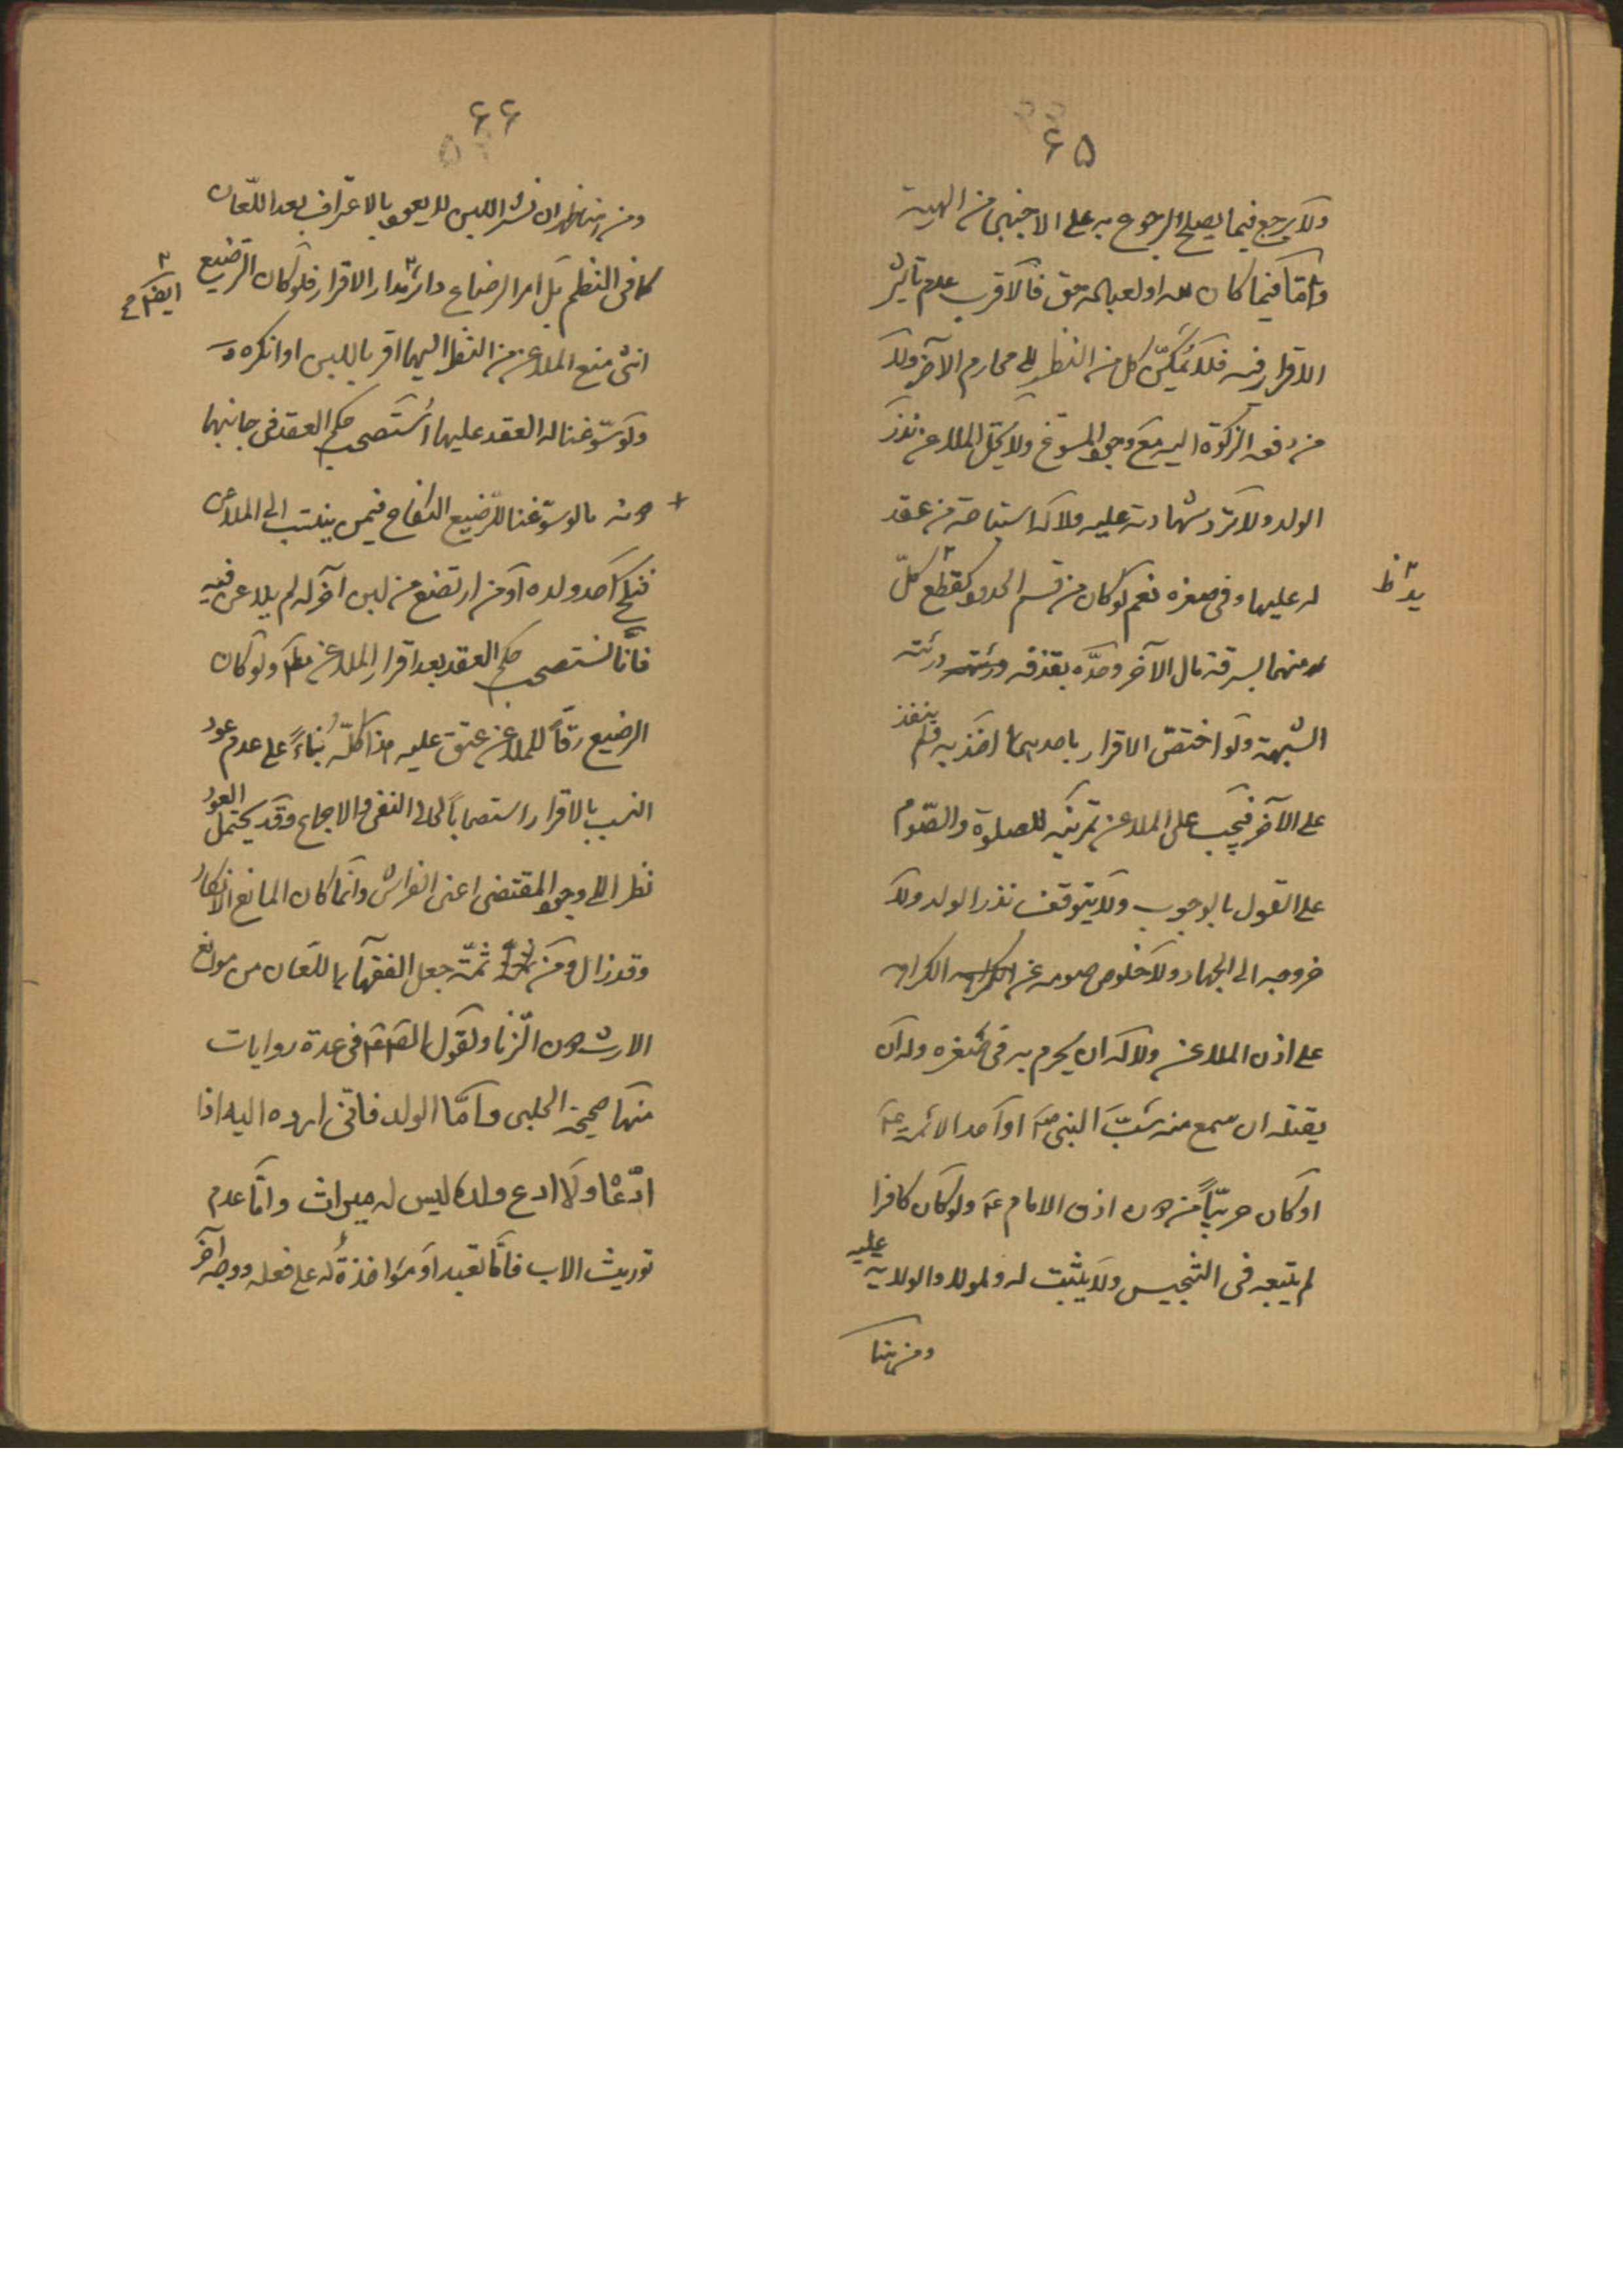 ۶۵
ولا يرجع فيما يصلح الرجوع به على الاجنبى من الهبة
وامّا فيما كان لله او لعباده حق فالاقرب عدم تاثير
الاقرار فيه فلا يُمكَّن كل من النظر الى محارم الآخر ولا
من دفع الزكوة اليه مع وجود المسوغ ولا يحل الملاعن نذر
الولد ولا تردّ شهادته عليه ولا له استباحة من عقد
له عليها وفى صغره نعم لو كان من قسم الحدود كقطع كلّ
يد ظ
منهما بسرقة مال الآخر وحدّه بقذفه ورثته درئته
الشبهة ولو اختصّ الاقرار باحدهما اخذ به ولم ينفذ
على الآخر فيجب على الملاعن تمرينه للصلوة والصّوم
على القول بالوجوب ولا يتوقف نذر الولد ولا
خروجه الى الجهاد ولا خلوص صومه عن الكراهه الكراهه
على اذن الملاعن ولا له ان يحرم به فى صغره وله ان
يقتله ان سمع منه سَبَّ النبى ص او احد الائمة ع
او كان حربيّاً من دون اذن الامام ع ولو كان كافرا
لم يتبعه فى التنجيس ولا يثبت له ولمولاه الولاية عليه
ومن هنا
۶۶
ومن هنا ظهر ان نشر اللبن لا يعود بالاعتراف بعد اللّعان
كما فى النظم بل امر الرضاع دائر مدار الاقرار فلو كان الرضيع
ايضاً
انثى منع الملاعن من النظر اليها اقر باللبن او انكره
ولو سوّغنا له العقد عليها استصحب حكم العقد فى جانبها
دونه ما لو سوّغنا للرّضيع النكاح فيمن ينتسب الى الملاعن
فنكح احد ولده او من ارتضع من لبن آخر له لم يلاعن فيه
فانّا نستصحب حكم العقد بعد اقرار الملاعن ولو كان
الرضيع رقاً للملاعن عتق عليه هذا كلّه بناءً على عدم عود
النسب بالاقرار استصحاباً لحال النفى والاجماع وقد يحتمل العود
نظرا الى وجود المقتضى اعنى الفراش وانّما كان المانع الانكار
وقد زال ومن ثمّة جعل الفقهاء اللعان من موانع
الارث دون الزّنا ولقول الص ع فى عدة روايات
منها صحيحة الحلبى وامّا الولد فانّى ارده اليه اذا
ادّعاه ولا ادع ولده ليس له ميراث وامّا عدم
توريث الاب فامّا تعبد او مؤاخذة له على فعله ووجه آخر